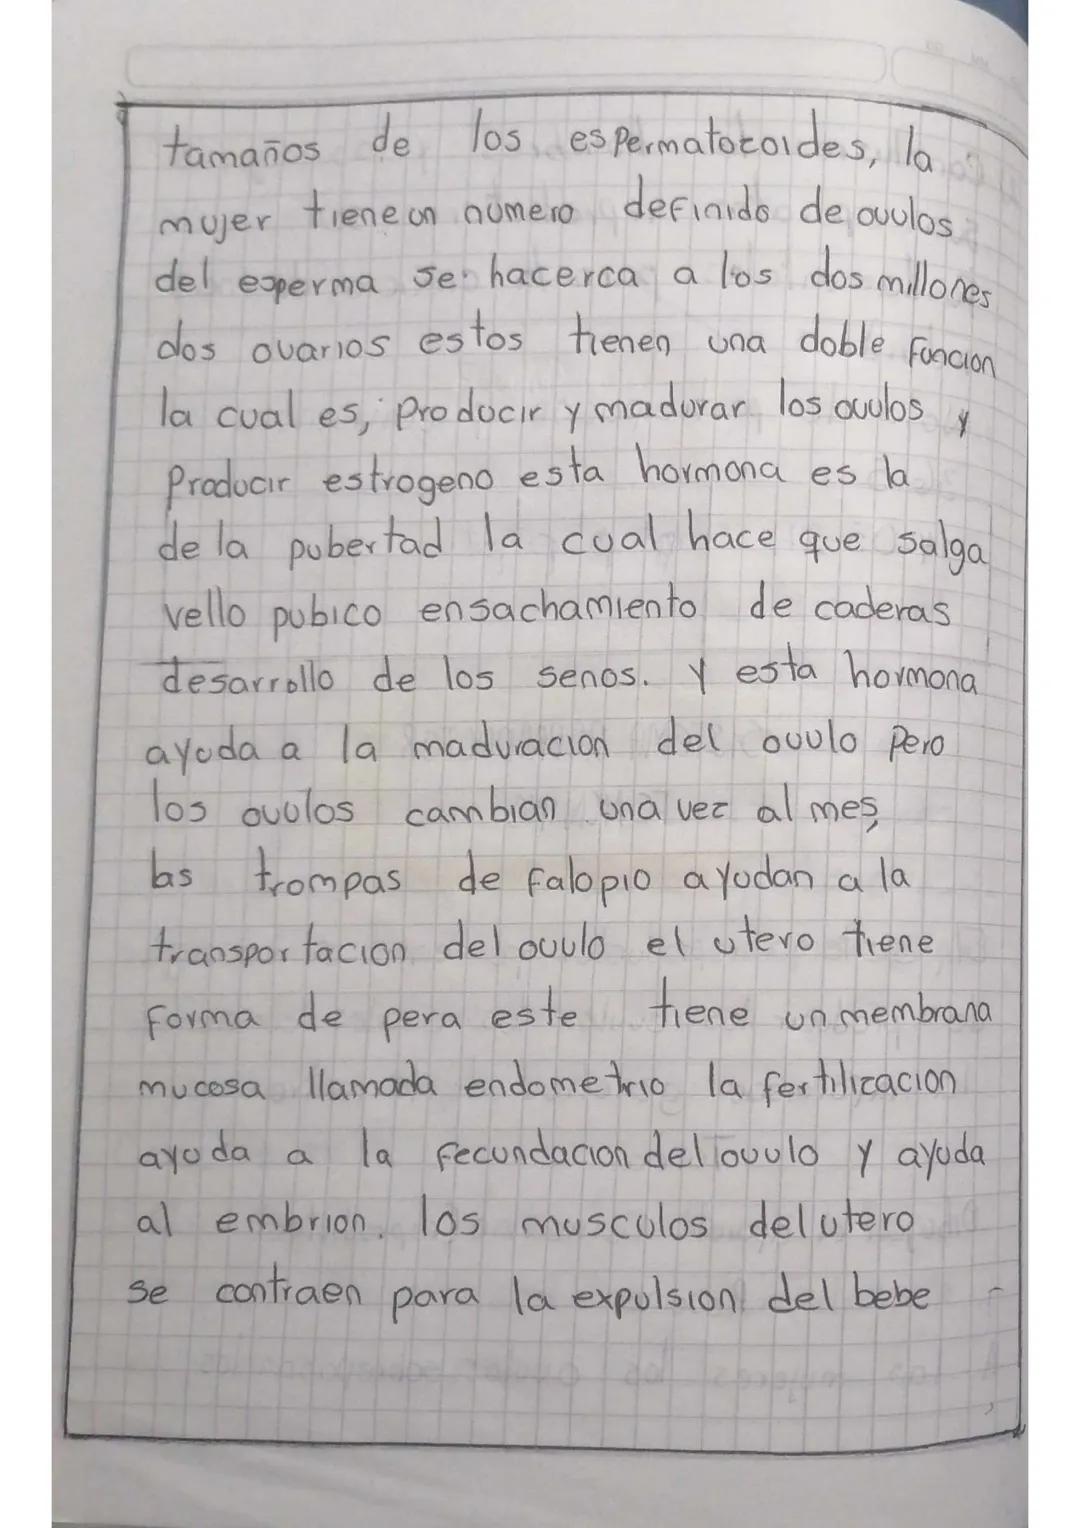 tamaños de los espermatozoides, la
mujer tiene un numero definido de ovulos
del esperma se hacerca a los dos millones
dos ovarios estos tienen una doble funcion
la cual es, producir y madurar los ovulos y
Producir estrogeno esta hormona es la
de la pubertad la cual hace que salga
vello pubico ensachamiento de caderas
desarrollo de los senos. y esta hormona
ayuda a la maduracion del ovulo pero
los ovulos cambian una vez al mes,
las trompas de falopio ayudan a la
transportacion del ovulo el utero tiene
forma de pera este tiene un membrana
mucosa llamada endometrio la fertilizacion
ayuda a la fecundacion del ovulo y ayuda
al embrion. los musculos del utero
se contraen para la expulsion del bebe